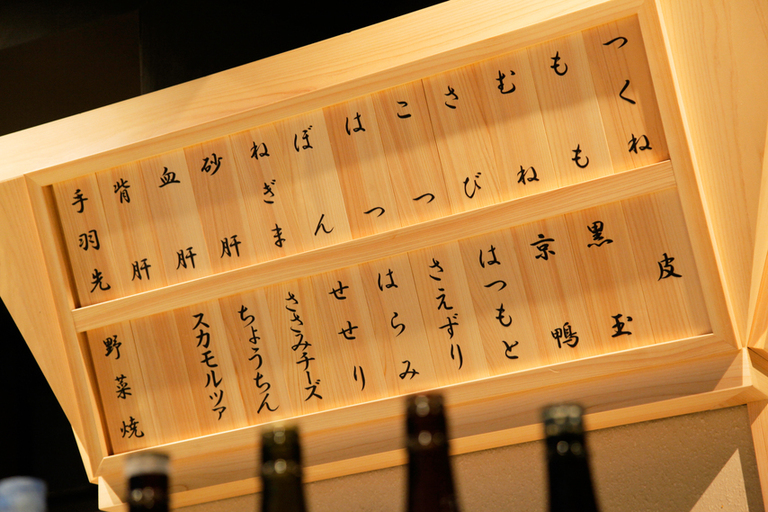 つくね
もも
むね
さび
こつ
はつ
ぼん
ねぎま
砂肝
血肝
背肝
手羽先
皮
黒玉
京鴨
はつもと
さえずり
はらみ
せせり
ささみチーズ
ちょうちん
スカモルツァ
野菜焼